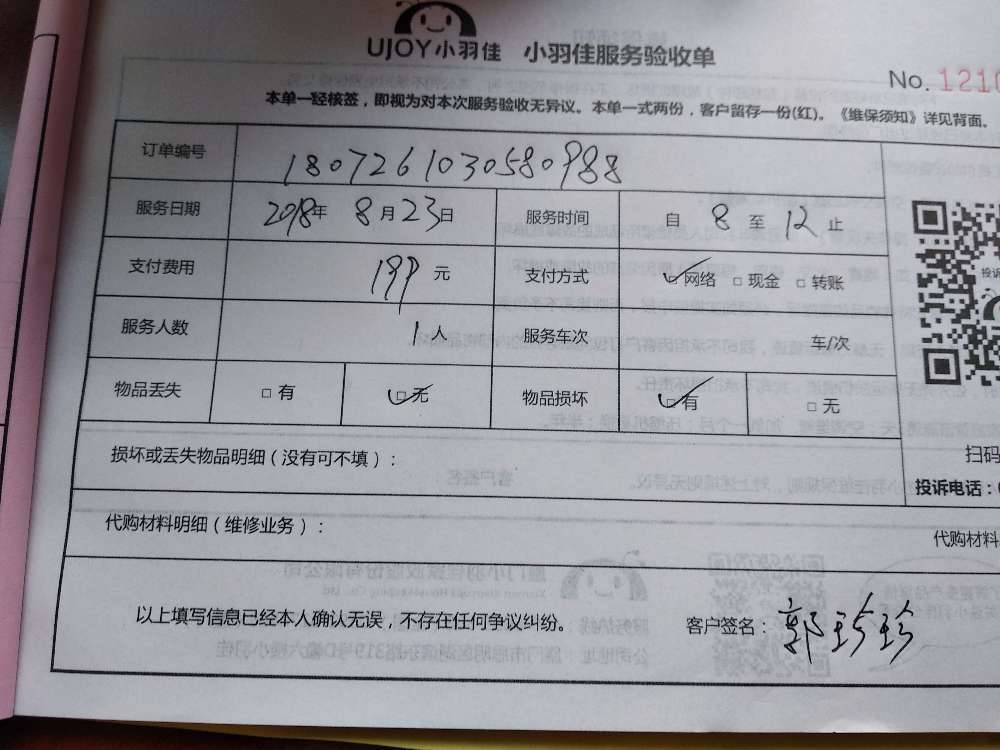 UJOY小羽佳 小羽佳服务验收单
No. 1210
本单一经核签，即视为对本次服务验收无异议。本单一式两份，客户留存一份(红)。《维保须知》详见背面。
订单编号 1807261030580988
服务日期 2018年 8月23日 服务时间 自 8 至 12 止
支付费用 199 元 支付方式 ☑网络 □现金 □转账
服务人数 1人 服务车次 车/次
物品丢失 □有 ☑无 物品损坏 ☑有 □无
损坏或丢失物品明细（没有可不填）：
扫码
投诉电话：
代购材料明细（维修业务）：
代购材料
以上填写信息已经本人确认无误，不存在任何争议纠纷。 客户签名：郭珍珍